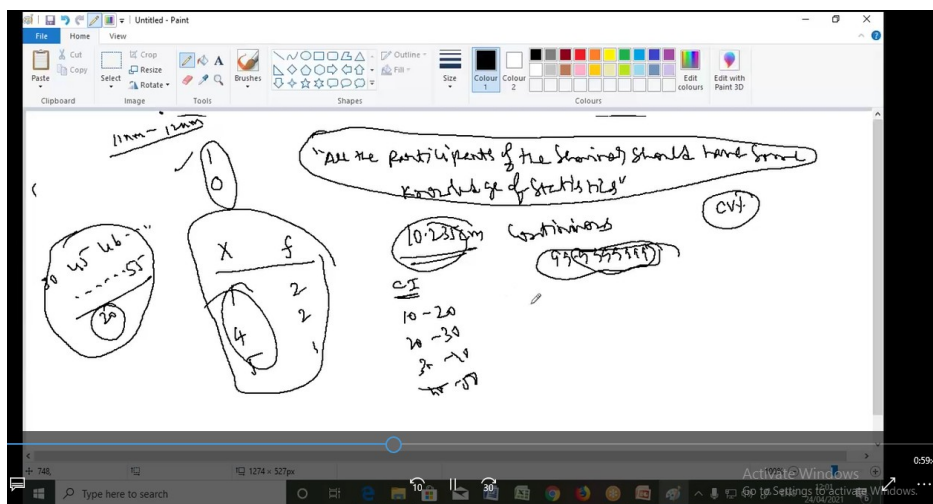 Untitled - Paint
File Home View
Cut
Copy
Paste
Clipboard
Select
Crop
Resize
Rotate
Image
Tools
Brushes
Shapes
Outline
Fill
Size
Colour 1
Colour 2
Colours
Edit colours
Edit with Paint 3D
11am - 12am
1
0
"All the participants of the Seminar should have some
knowledge of Statistics"
CV%
10.235gm Continious
30 45 46 ....
......55
20
X f
1 2
4 2
5 1
C.I
10-20
20-30
748,
1274 × 527px
100%
0:59:
Activate Windows
Go to Settings to activate Windows.
10
30
Type here to search
12:01
24/04/2021